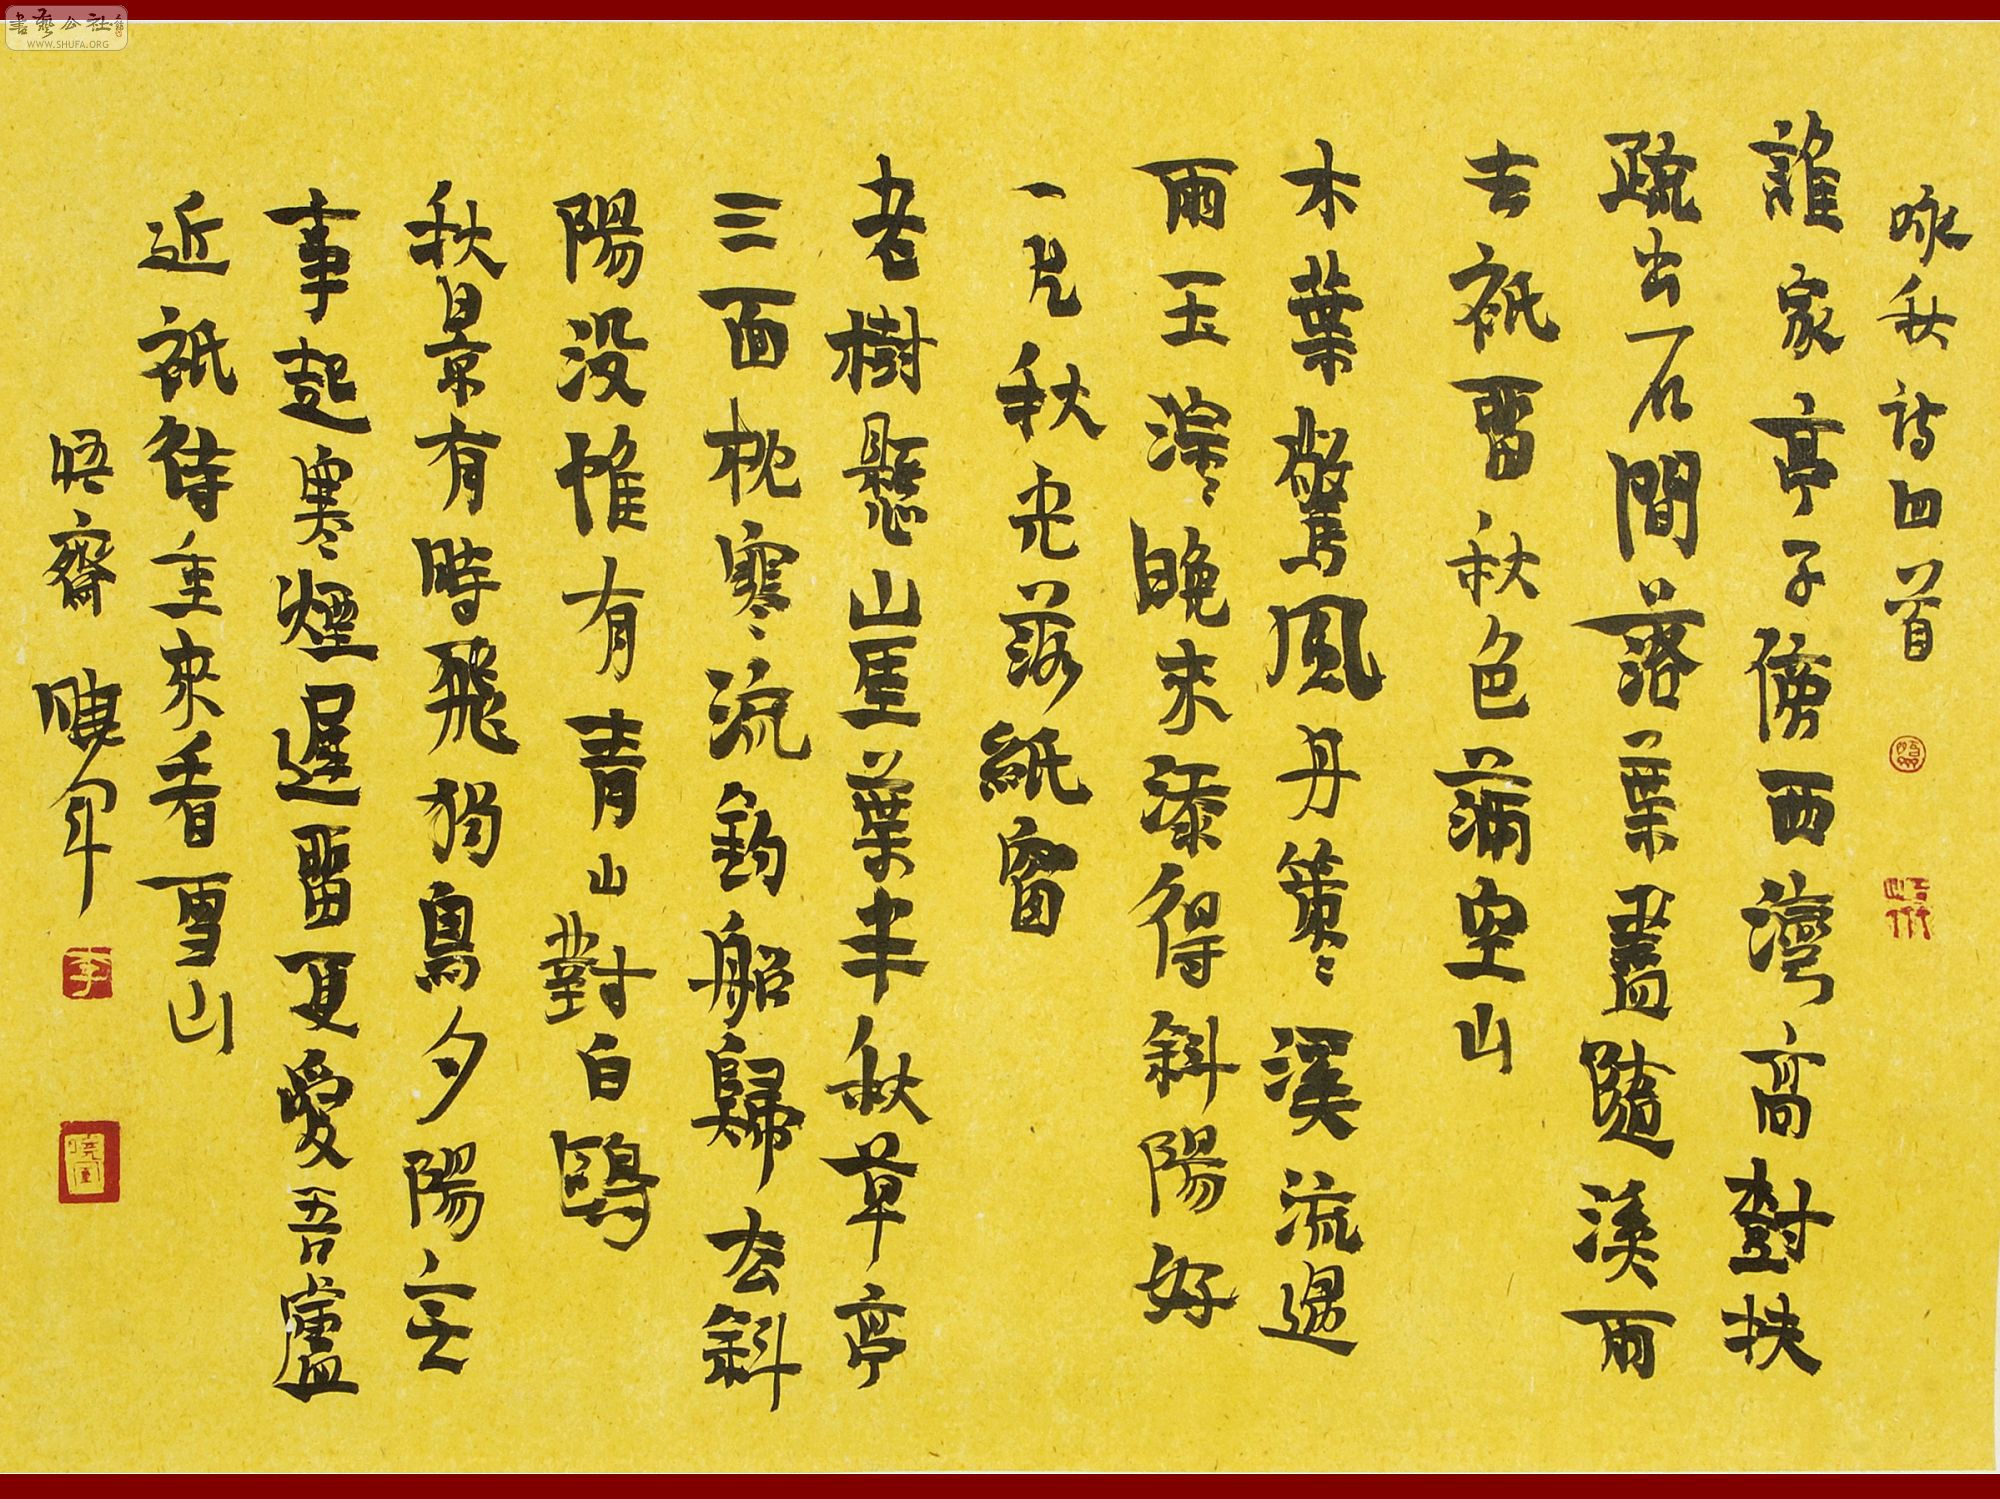 咏秋詩四首
誰家亭子傍西灣高對扶
疏出石間落葉盡隨溪雨
去衹留秋色滿空山
木葉驚風丹策策溪流過
雨玉淙淙晚來添得斜陽好
一片秋光落紙窗
老樹懸山崖葉半秋草亭
三面枕寒流釣船歸去斜
陽没惟有青山對白鷗
秋景有時飛獨鳥夕陽無
事起寒煙遲留更愛吾廬
近衹待重來看雪山
悟齋 曉軍
書藝公社
WWW.SHUFA.ORG